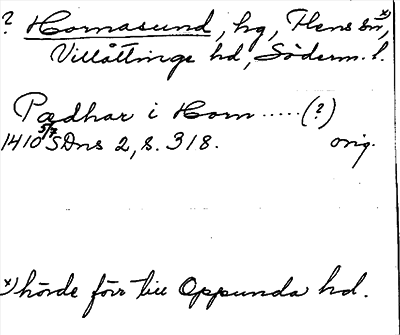 ? Hornasund, hg, Flens sn x),
Villåttinge hd, Söderm. l.
Pædhar i Horn ..... (?)
1410 5/7 SDns 2, s. 318. orig.
x) hörde förr till Oppunda hd.